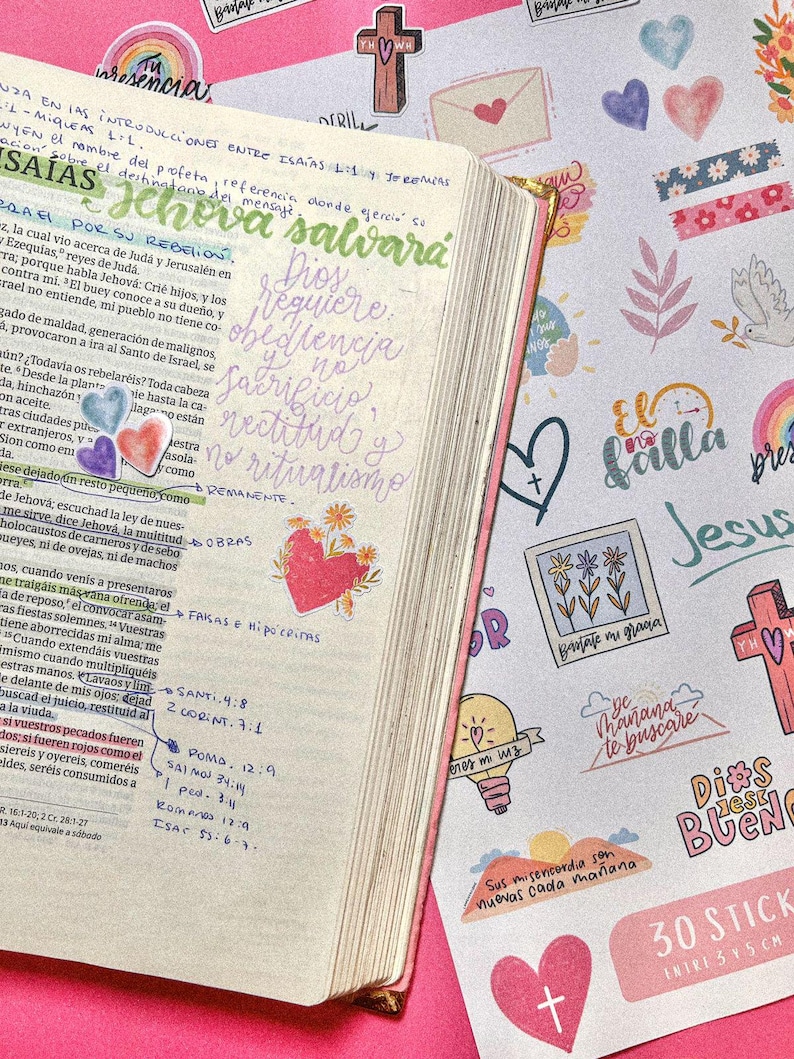 Bástate mi gracia
Bástate mi
Tu
presencia
YH WH
NZA EN LAS INTRODUCCIONES ENTRE ISAÍAS 1:1 y JEREMÍAS
1:1 - MIQUEAS 1:1.
UYEN el nombre del profeta, referencia donde ejerció su
sobre el destinatario del mensaje
ISAÍAS
Jehová salvará
POR SU REBELIÓN
Dios
requiere:
obediencia
y no
sacrificio,
rectitud y
no ritualismo
az, la cual vio acerca de Judá y Jerusalén en
y Ezequías, reyes de Judá.
rra; porque habla Jehová: Crié hijos, y los
contra mí. 3 El buey conoce a su dueño, y
srael no entiende, mi pueblo no tiene co-
gado de maldad, generación de malignos,
á, provocaron a ira al Santo de Israel, se
aún? ¿Todavía os rebelaréis? Toda cabeza
te. 6 Desde la planta pie hasta la ca-
da, hinchazón llaga no están
on aceite.
tras ciudades
r extranjeros, y
Sion como en y como
da.
iese dejado un resto pequeño, como
orra.
REMANENTE.
de Jehová; escuchad la ley de nues-
me sirve, dice Jehová, la multitud
holocaustos de carneros y de sebo
ueyes, ni de ovejas, ni de machos
OBRAS
os, cuando venís a presentaros
me traigáis más vana ofrenda; el
ía de reposo, el convocar asam-
ras fiestas solemnes. 14 Vuestras
tiene aborrecidas mi alma; me
15 Cuando extendáis vuestras
imismo cuando multipliquéis
estras manos. Lavaos y lim-
e delante de mis ojos; dejad
buscad el juicio, restituid al
a la viuda.
si vuestros pecados fueren
dos; si fueren rojos como el
isiereis y oyereis, comeréis
eldes, seréis consumidos a
FALSAS E HIPÓCRITAS
SANTI. 4:8
2 CORINT. 7:1
ROMA. 12:9
SALMOS 34:14
1 PED. 3:11
ROMANOS 12:9
ISAI 55:6-7.
R. 16:1-20; 2 Cr. 28:1-27
13 Aquí equivale a sábado
El
no
falla
presen
Jesus
Bástate mi gracia
YH WH
OR
eres mi luz
De
mañana
te buscaré
Dios
es
BUENO
Sus misericordia son
nuevas cada mañana
30 STICK
ENTRE 3 Y 5 CM